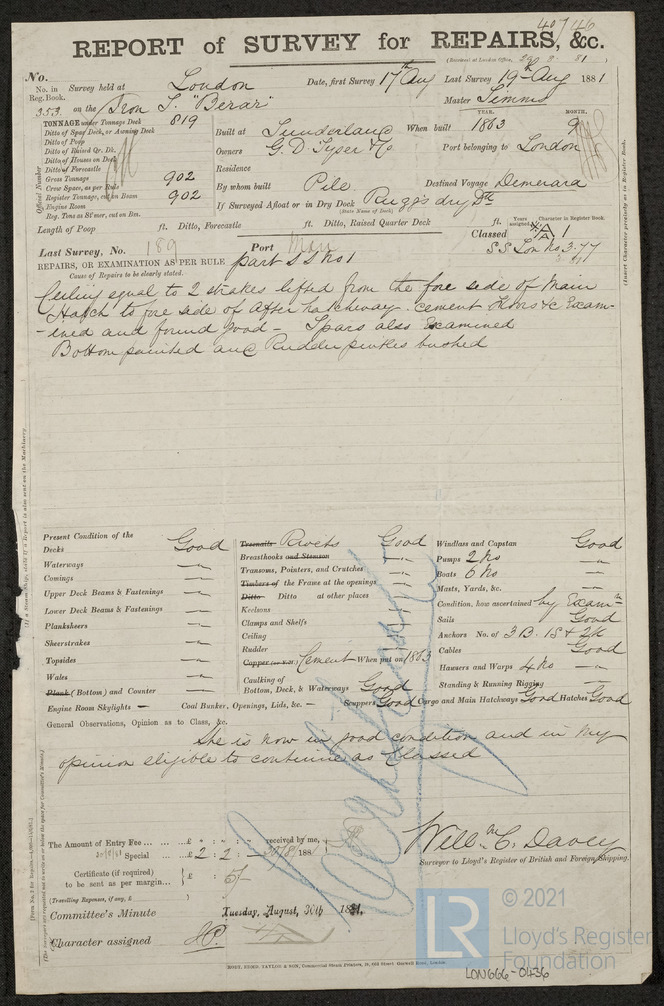 40746
REPORT of SURVEY for REPAIRS, &c.
(Received at London Office, 29. 8. 81)
No.
No. in Reg. Book. Survey held at London Date, first Survey 17th Aug Last Survey 19th Aug 1881
353 on the Iron S. "Berar" Master Simms
TONNAGE under Tonnage Deck 819
Ditto of Spar Deck, or Awning Deck
Ditto of Poop
Ditto of Raised Qr. Dk.
Ditto of Houses on Deck
Ditto of Forecastle
Gross Tonnage 902
Crew Space, as per Rule
Register Tonnage, cut on Beam 902
Engine Room
Reg. Tons as St'mer, cut on Bm.
Official Number
Built at Sunderland When built YEAR. 1863 MONTH. 9
Owners G. D. Tyser & Co Port belonging to London
Residence
By whom built Pile Destined Voyage Demerara
If Surveyed Afloat or in Dry Dock Rugg's dry Dk
(State Name of Dock)
Length of Poop ft. Ditto, Forecastle ft. Ditto, Raised Quarter Deck ft.
Years assigned. Character in Register Book.
Classed A 1
SS Lon No 3. 77
Last Survey, No. 189 Port
REPAIRS, OR EXAMINATION AS PER RULE part SS No 1
Cause of Repairs to be clearly stated.
Ceiling equal to 2 strakes lifted from the fore side of Main
Hatch to fore side of After hatchway. cement floors &c Exam-
-ined and found good - Spars also Examined
Bottom painted and Rudder pintles bushed
Present Condition of the
Decks Good
Waterways "
Comings "
Upper Deck Beams & Fastenings "
Lower Deck Beams & Fastenings "
Planksheers "
Sheerstrakes "
Topsides "
Wales "
Plank (Bottom) and Counter "
Engine Room Skylights — Coal Bunker, Openings, Lids, &c. — Scuppers Good Cargo and Main Hatchways Good Hatches Good
Treenails Rivets Good
Breasthooks and Stemson "
Transoms, Pointers, and Crutches "
Timbers of the Frame at the openings "
Ditto Ditto at other places "
Keelsons "
Clamps and Shelfs "
Ceiling "
Rudder "
Copper Cement When put on 1863
Caulking of
Bottom, Deck, & Waterways Good
Windlass and Capstan Good
Pumps 2 No "
Boats 6 No "
Masts, Yards, &c. "
Condition, how ascertained by Examn
Sails Good
Anchors No. of 3 B. 1 S & 2 K
Cables Good
Hawsers and Warps 4 No "
Standing & Running Rigging "
General Observations, Opinion as to Class, &c.
She is now in good condition and in my
opinion eligible to continue as Classed
The Amount of Entry Fee ... £ " : " : " received by me,
Special ... £ 2 : 2 : — 30/8/1881
Certificate (if required)
to be sent as per margin... £ : 5/-
(Travelling Expenses, if any, £ )
Willm C. Davey
Surveyor to Lloyd's Register of British and Foreign Shipping.
Committee's Minute Tuesday, August, 30th 1881.
Character assigned
© 2021
LR
Lloyd's Register
Foundation
LON666-0436